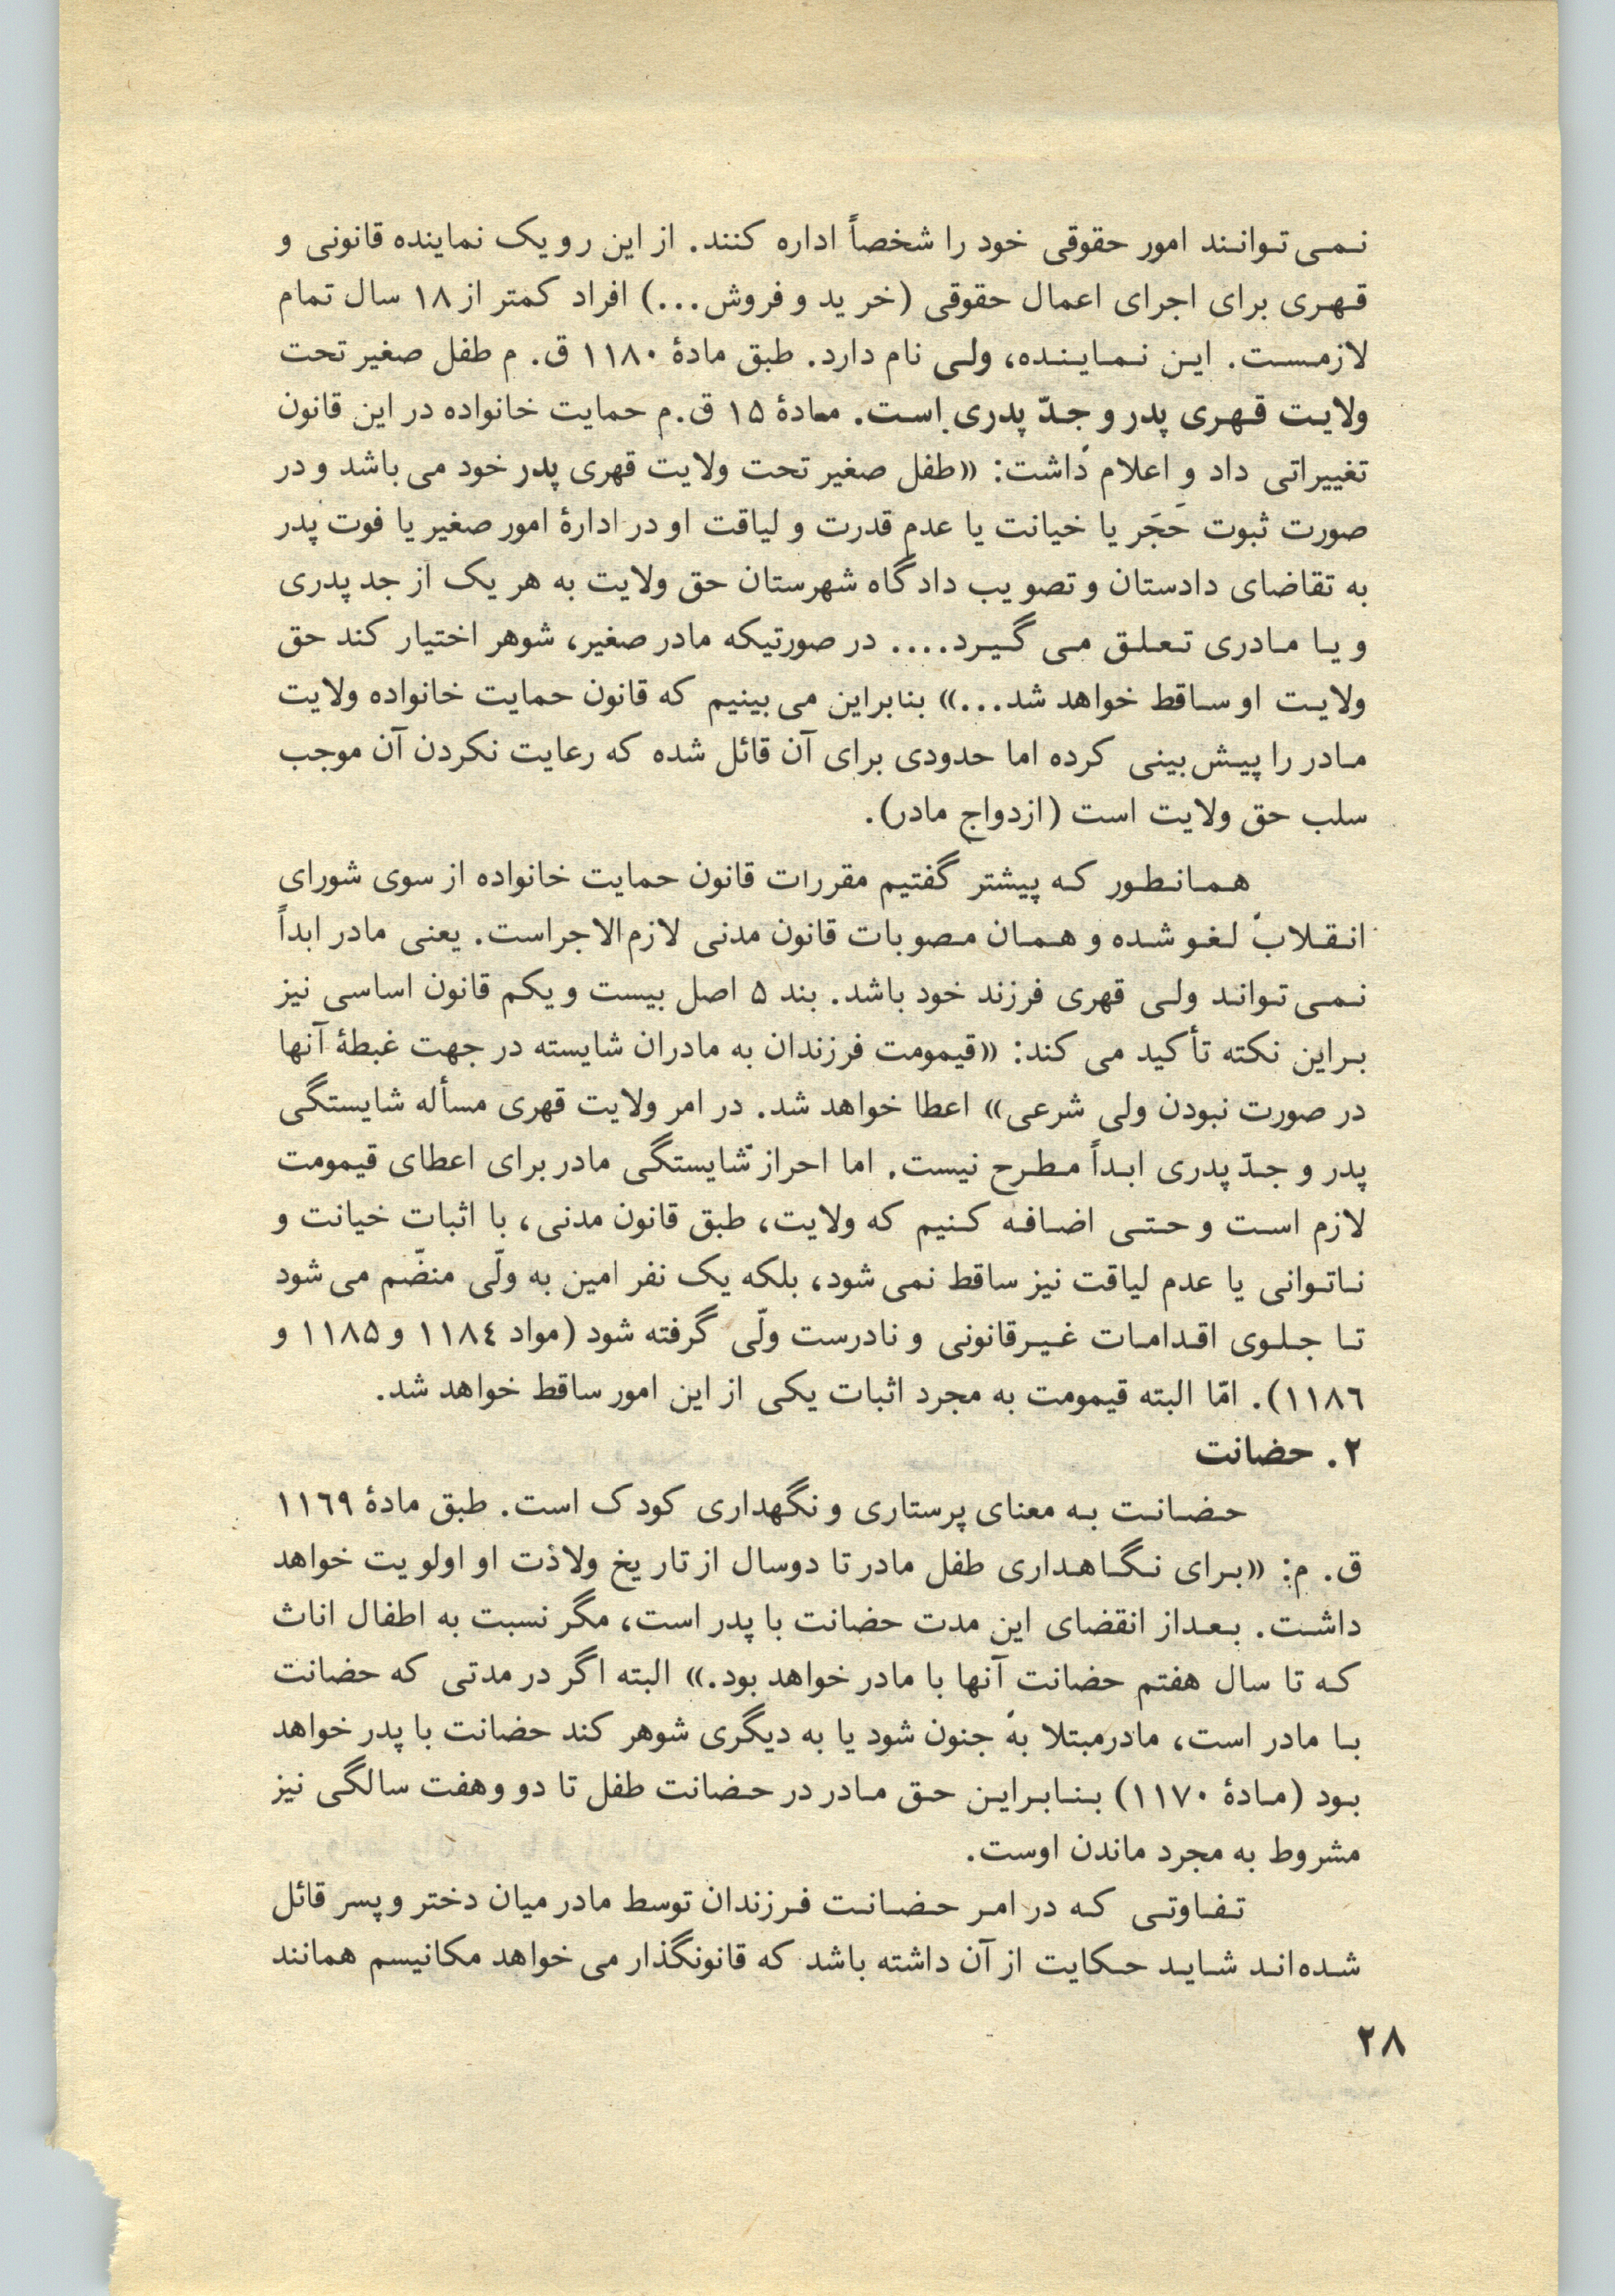 نمی‌توانند امور حقوقی خود را شخصاً اداره کنند. از این رو یک نماینده قانونی و
قهری برای اجرای اعمال حقوقی (خرید و فروش...) افراد کمتر از ۱۸ سال تمام
لازمست. این نماینده، ولی نام دارد. طبق مادهٔ ۱۱۸۰ ق. م طفل صغیر تحت
ولایت قهری پدر و جدّ پدری است. مادهٔ ۱۵ ق.م حمایت خانواده در این قانون
تغییراتی داد و اعلام داشت: «طفل صغیر تحت ولایت قهری پدر خود می‌باشد و در
صورت ثبوت حَجَر یا خیانت یا عدم قدرت و لیاقت او در ادارهٔ امور صغیر یا فوت پدر
به تقاضای دادستان و تصویب دادگاه شهرستان حق ولایت به هر یک از جد پدری
و یا مادری تعلق می گیرد.... در صورتیکه مادر صغیر، شوهر اختیار کند حق
ولایت او ساقط خواهد شد...» بنابراین می‌بینیم که قانون حمایت خانواده ولایت
مادر را پیش‌بینی کرده اما حدودی برای آن قائل شده که رعایت نکردن آن موجب
سلب حق ولایت است (ازدواج مادر).
همانطور که پیشتر گفتیم مقررات قانون حمایت خانواده از سوی شورای
انقلاب لغو شده و همان مصوبات قانون مدنی لازم‌الاجراست. یعنی مادر ابداً
نمی‌تواند ولی قهری فرزند خود باشد. بند ۵ اصل بیست و یکم قانون اساسی نیز
براین نکته تأکید می کند: «قیمومت فرزندان به مادران شایسته در جهت غبطهٔ آنها
در صورت نبودن ولی شرعی» اعطا خواهد شد. در امر ولایت قهری مسأله شایستگی
پدر و جدّ پدری ابداً مطرح نیست. اما احراز شایستگی مادر برای اعطای قیمومت
لازم است و حتی اضافه کنیم که ولایت، طبق قانون مدنی، با اثبات خیانت و
ناتوانی یا عدم لیاقت نیز ساقط نمی‌شود، بلکه یک نفر امین به ولّی منضّم می‌شود
تا جلوی اقدامات غیرقانونی و نادرست ولّی گرفته شود (مواد ۱۱۸۴ و ۱۱۸۵ و
۱۱۸۶). امّا البته قیمومت به مجرد اثبات یکی از این امور ساقط خواهد شد.
۲. حضانت
حضانت به معنای پرستاری و نگهداری کودک است. طبق مادهٔ ۱۱۶۹
ق. م: «برای نگاهداری طفل مادر تا دوسال از تاریخ ولادت او اولویت خواهد
داشت. بعداز انقضای این مدت حضانت با پدر است، مگر نسبت به اطفال اناث
که تا سال هفتم حضانت آنها با مادر خواهد بود.» البته اگر در مدتی که حضانت
با مادر است، مادرمبتلا به جنون شود یا به دیگری شوهر کند حضانت با پدر خواهد
بود (مادهٔ ۱۱۷۰) بنابراین حق مادر در حضانت طفل تا دو و هفت سالگی نیز
مشروط به مجرد ماندن اوست.
تفاوتی که در امر حضانت فرزندان توسط مادر میان دختر و پسر قائل
شده‌اند شاید حکایت از آن داشته باشد که قانونگذار می‌خواهد مکانیسم همانند
۲۸